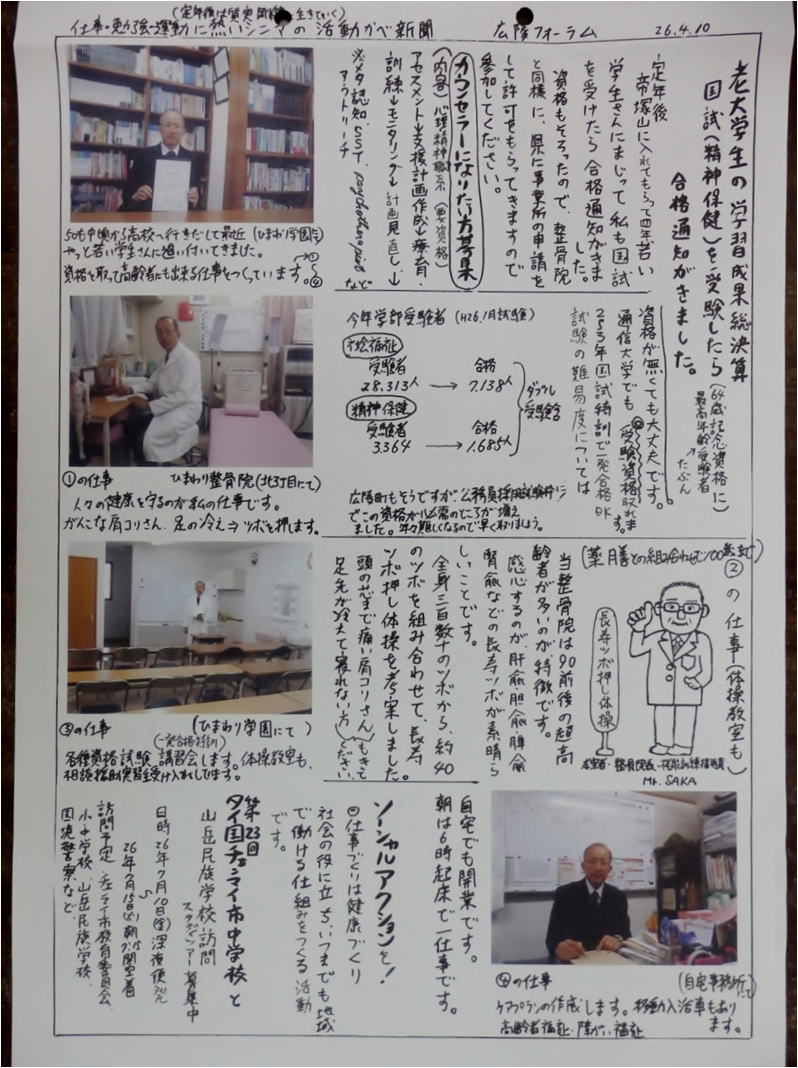 (定年後は質実剛健に生きていく)
仕事・勉強・運動に熱いシニアの活動かべ新聞 広陵フォーラム 26.4.10
老大学生の学習成果総決算
国試(精神保健)を受験したら
合格通知がきました。
(64歳記念資格に)
最高年齢受験者
たぶん
定年後
帝塚山に入れてもらって四年若い
学生さんにまじって私も国試
を受けたら合格通知がきま
した。
資格もそろったので、整骨院
と同様に、県に事業所の申請を
して許可をもらってきますので
参加してください。
カウンセラーになりたい方募集
(内容)心理・精神職系(要資格)
アセスメント→支援計画作成→療育・
訓練→モニタリング→計画見直し→
※メタ認知、SST、psychotherapies など
アウトリーチ
50も中頃から高校へ行きだして最近(ひまわり学園にて)
やっと若い学生さんに追い付いてきました。
資格を取って高齢者にも出来る仕事をつくっています。①〜④
資格が無くても大丈夫です。
通信大学でも(受験資格取れます)
2、3年国試特訓で一発合格OK
試験の難易度については
今年学部受験者 (H26.1月試験)
社会福祉
受験者 合格
28.313人 → 7.138人
精神保健
受験者 合格
3364 → 1.685人
ダブル受験含
広陵町もそうですが、公務員採用試験など
でこの資格が必需のところが増え
ました。年々難しくなるので早く取りましょう。
①の仕事 ひまわり整骨院(北3丁目にて)
人々の健康を守るのが私の仕事です。
がんこな肩コリさん、足の冷え⇒ツボを押します。
②の仕事(体操教室も)
(薬膳との組み合わせで100歳まで)
長寿ツボ押し体操
Mr. SAKA
当整骨院は90前後の超高
齢者が多いのが特徴です。
感心するのが、肝愈・胆愈・脾愈
腎愈などの長寿ツボが素晴ら
しいことです。
全身三百数十のツボから、約40
のツボを組み合わせて、長寿
ツボ押し体操を考案しました。
頭の芯まで痛い肩コリさん
足先が冷えて寝れない方
もきてください。
③の仕事 (ひまわり学園にて)
(一発合格特訓)
各種資格試験講習会します。体操教室も、
相談援助実習も受け入れしてます。
自宅でも開業です。
朝は6時起床で一仕事です。
ソーシャルアクションを!
◎仕事づくりは健康づくり
社会の役に立ち、いつまでも地域
で働ける仕組みをつくる活動
です。
第23回
タイ国チェンマイ市中学校と
山岳民族学校訪問
スタディツアー募集中
日時26年7月10日(金)深夜便発
〜
26年7月15日(火)朝7:15関空着
訪問予定・チェンライ市教育委員会、
小中学校、山岳民族学校、
国境警察など
④の仕事 (自宅事務所にて)
ケアプランの作成します。移動入浴車もあり
ます。
高齢者福祉・障がい福祉